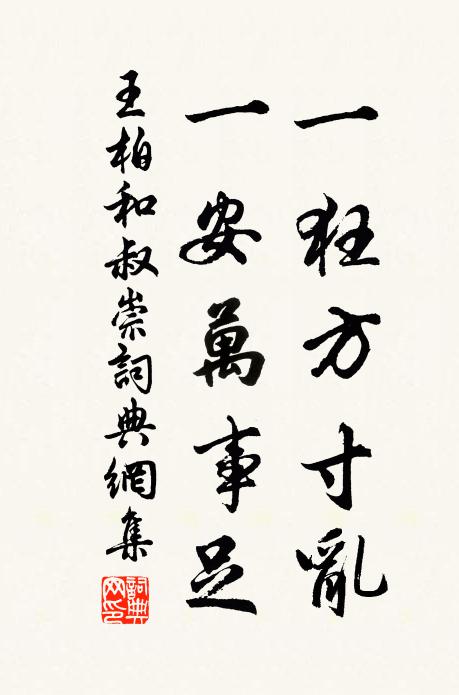 一狂方寸亂
一安萬事足
王柏和叔崇詞典網集
詞典網印